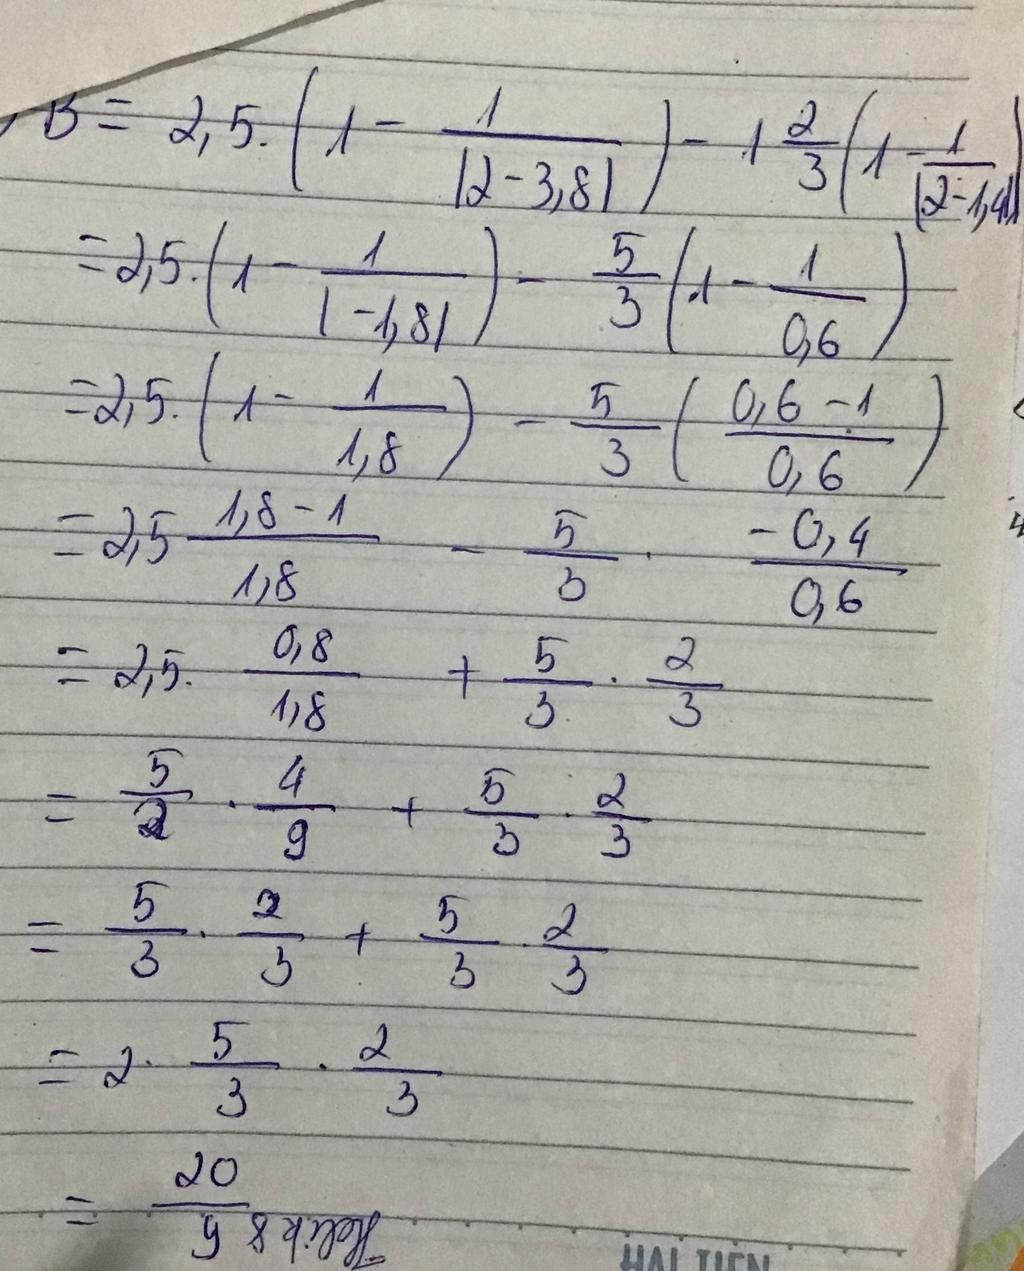 B = 2,5. (1 - 1/|2 - 3,8|) - 1 2/3 (1 - 1/|2 - 1,4|)
= 2,5. (1 - 1/|-1,8|) - 5/3 (1 - 1/0,6)
= 2,5. (1 - 1/1,8) - 5/3 ((0,6 - 1)/0,6)
= 2,5 (1,8 - 1)/1,8 - 5/3 . (-0,4)/0,6
= 2,5. 0,8/1,8 + 5/3 . 2/3
= 5/2 . 4/9 + 5/3 . 2/3
= 5/3 . 2/3 + 5/3 . 2/3
= 2. 5/3 . 2/3
= 20/9
HẢI TIẾN